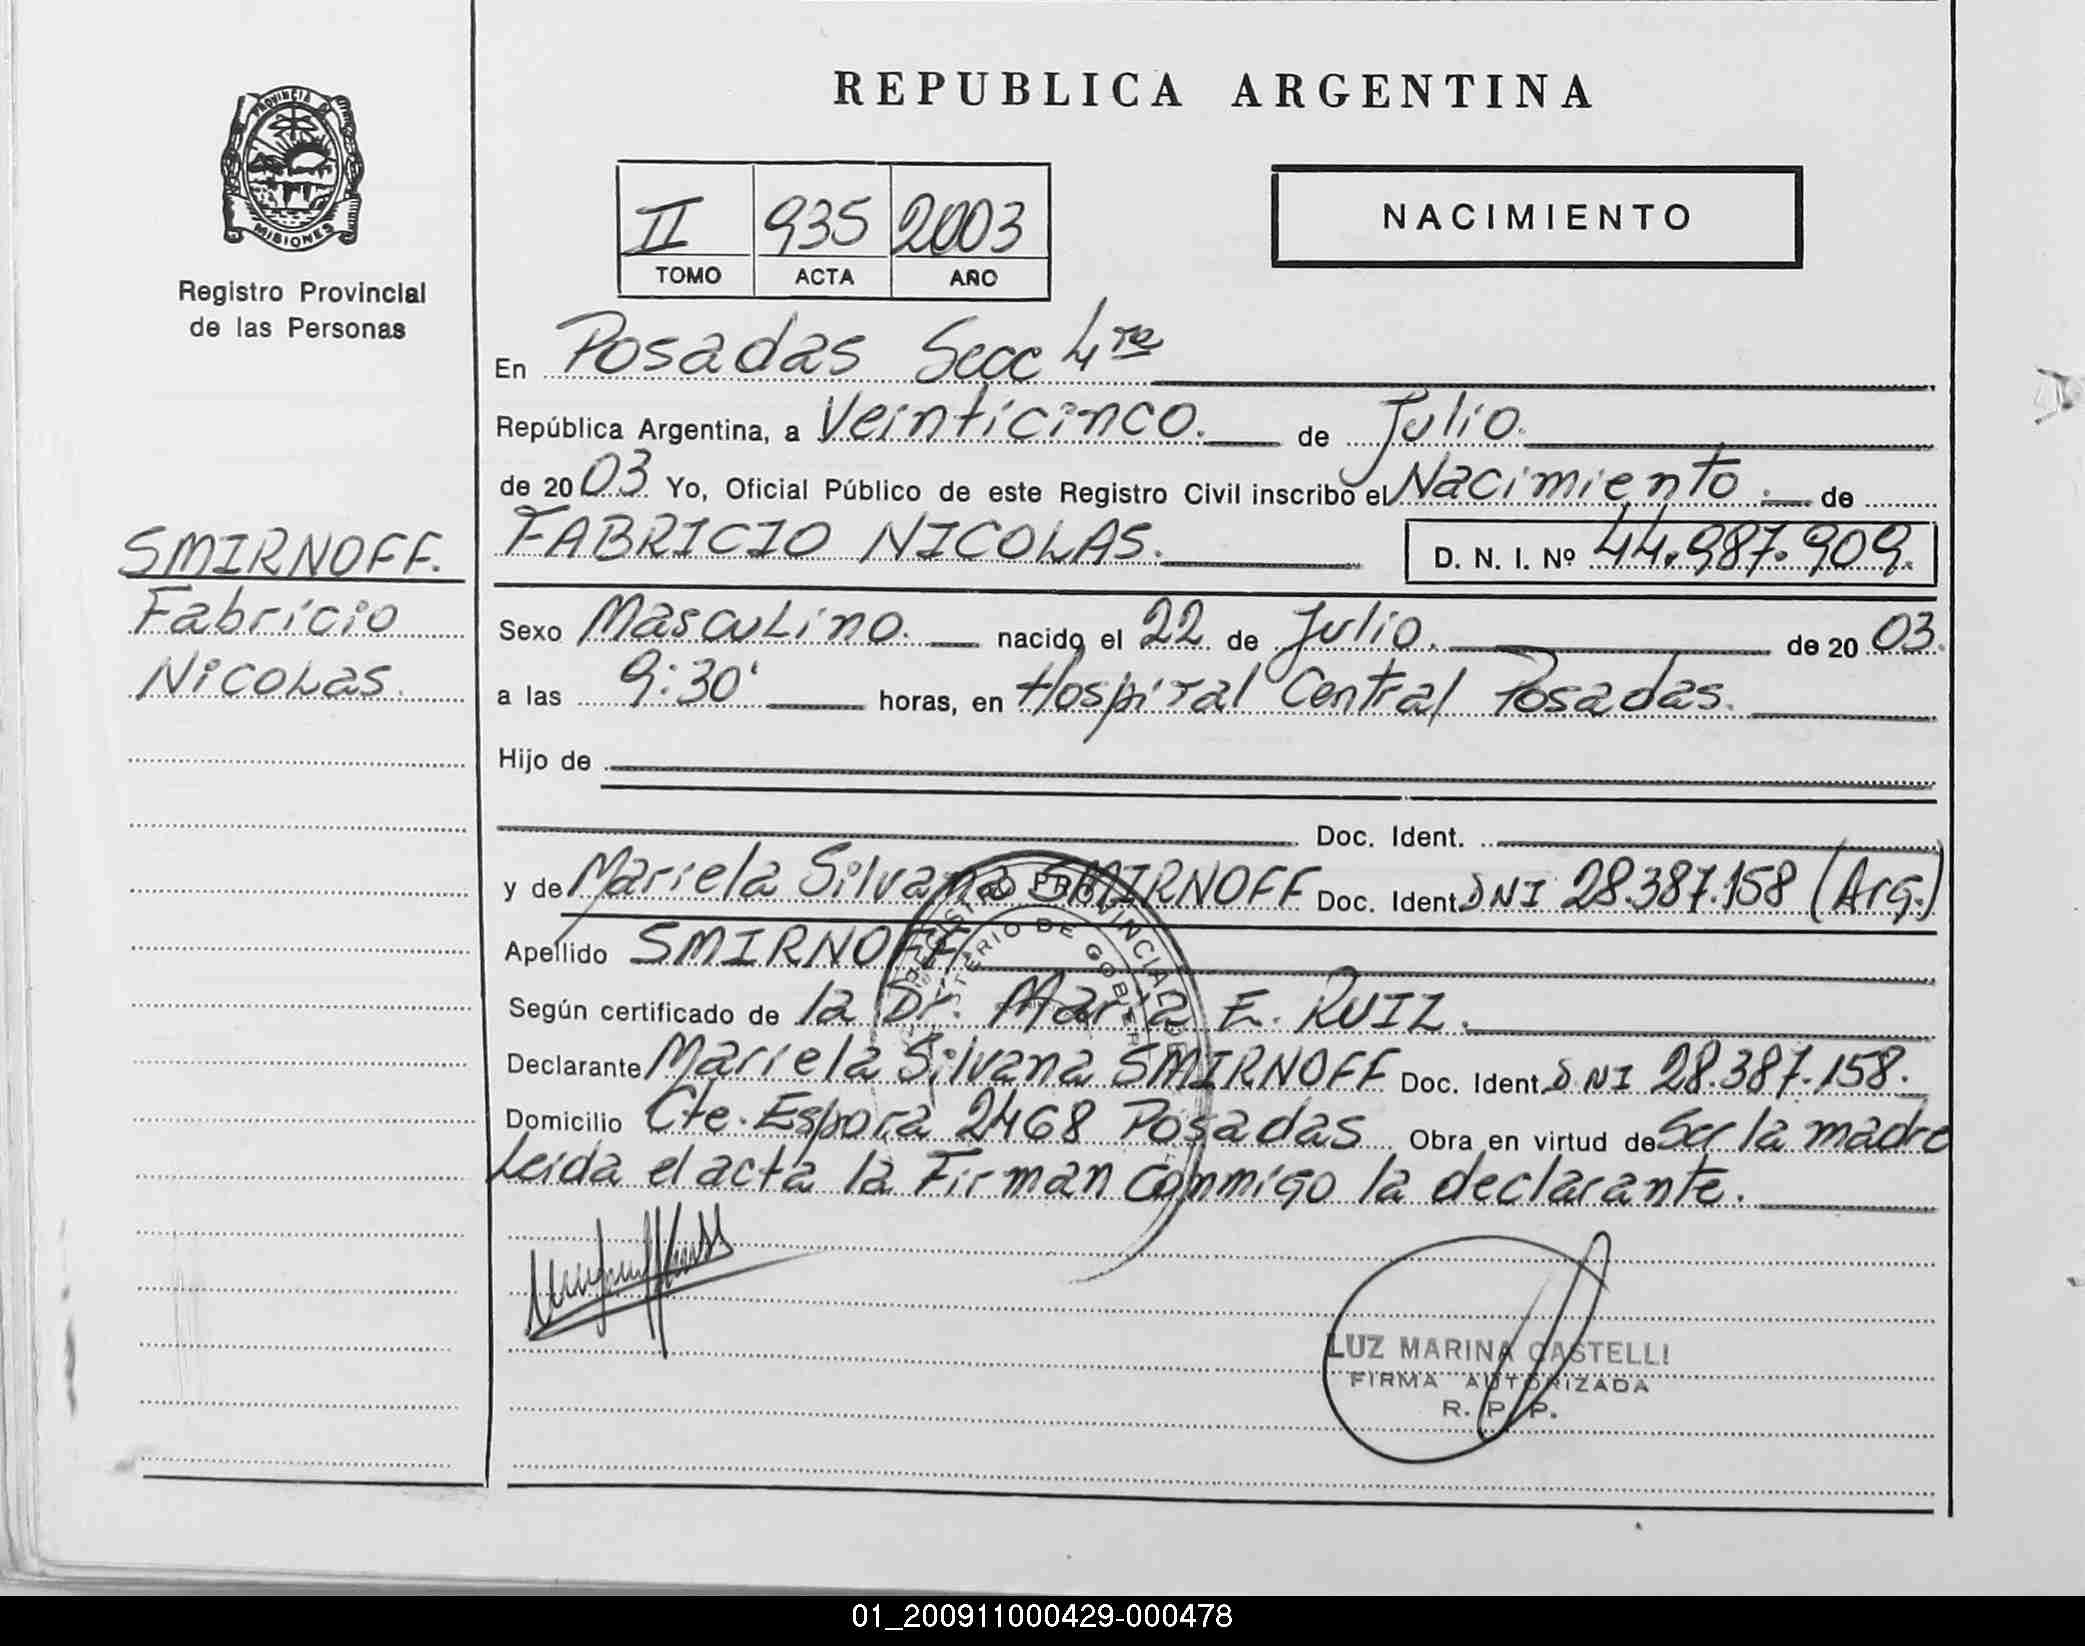 REPUBLICA ARGENTINA
PROVINCIA DE
MISIONES
Registro Provincial
de las Personas
II 935 2003
TOMO ACTA AÑO
NACIMIENTO
En Posadas Secc 4ta
República Argentina, a Veinticinco. de Julio.
de 2003 Yo, Oficial Público de este Registro Civil inscribo el Nacimiento. de
FABRICIO NICOLAS. D. N. I. Nº 44.987.909.
SMIRNOFF.
Fabricio
Nicolas.
Sexo Masculino. nacido el 22 de Julio. de 2003.
a las 9:30' horas, en Hospital Central Posadas.
Hijo de
Doc. Ident.
y de Mariela Silvana SMIRNOFF Doc. Ident. DNI 28.387.158 (Arg.)
Apellido SMIRNOFF
Según certificado de la Dr. Maria E. RUIZ.
Declarante Mariela Silvana SMIRNOFF Doc. Ident. DNI 28.387.158.
Domicilio Cte. Espora 2468 Posadas Obra en virtud de Ser la madre
Leida el acta la Firman conmigo la declarante.
REGISTRO PROVINCIAL DE
MINISTERIO DE GOBIER
LUZ MARINA CASTELLI
FIRMA AUTORIZADA
R. P. P.
01_200911000429-000478